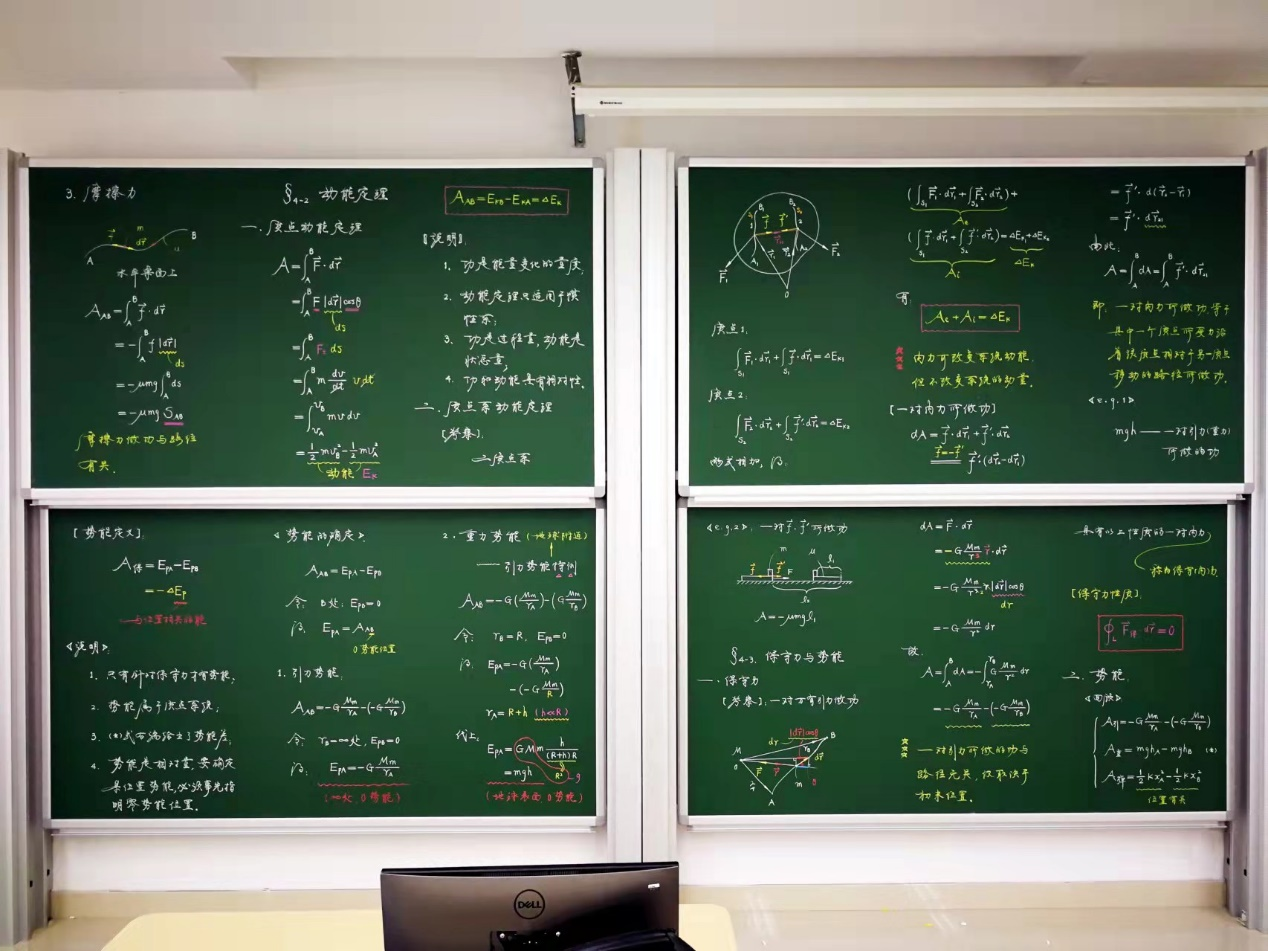 3. 摩擦力
m
f dr
A B
μ
水平桌面上
A_AB=∫_A^B f·dr
=-∫_A^B f|dr|
ds
=-μmg∫_A^B ds
=-μmg S_AB
摩擦力做功与路径
有关.
§4-2 动能定理
一. 质点动能定理
A=∫_A^B F·dr
=∫_A^B F|dr|cosθ
ds
=∫_A^B Fτ ds
=∫_A^B m dv/dt vdt
=∫_{v_A}^{v_B} mvdv
=½mv_B²-½mv_A²
动能 E_K
A_AB=E_KB-E_KA=ΔE_K
[说明]:
1. 功是能量变化的量度;
2. 动能定理只适用于惯
性系;
3. 功是过程量,动能是
状态量;
4. 功和动能具有相对性.
二. 质点系动能定理
[考察]:
二质点系
B₁ B₂
S₁ S₂
1 f f' 2
A₁ r₁ r₂ A₂
F₁ F₂
O
质点1:
∫_{S₁}F₁·dr₁+∫_{S₁}f·dr₁=ΔE_K1
质点2:
∫_{S₂}F₂·dr₂+∫_{S₂}f'·dr₂=ΔE_K2
两式相加,得:
(∫_{S₁}F₁·dr₁+∫_{S₂}F₂·dr₂)+
A_e
(∫_{S₁}f·dr₁+∫_{S₂}f'·dr₂)=ΔE_K1+ΔE_K2
A_i ΔE_K
有:
A_e+A_i=ΔE_K
内力可改变系统动能,
但不改变系统的动量.
[一对内力所做功]
dA=f·dr₁+f'·dr₂
f=-f' f'·(dr₂-dr₁)
=f'·d(r₂-r₁)
=f'·dr₂₁
由此:
A=∫_A^B dA=∫_A^B f'·dr₂₁
即:一对内力所做功,等于
其中一个质点所受力沿
着该质点相对于另一质点
移动的路径所做功.
<e.g.1>
mgh——一对引力(重力)
所做的功
[势能定义]:
A保=E_PA-E_PB
=-ΔE_P
与位置相关的能
<说明>:
1. 只有针对保守力才有势能;
2. 势能属于质点系统;
3. (*)式不能给出了势能差;
4. 势能是相对量,要确定
某位置势能,必须事先指
明零势能位置.
<势能的确定>:
A_AB=E_PA-E_PB
令: B处:E_PB=0
得: E_PA=A_AB
0势能位置
1. 引力势能:
A_AB=-G Mm/r_A-(-G Mm/r_B)
令: r_B=∞处, E_PB=0
得: E_PA=-G Mm/r_A
(∞处,0势能)
2. 重力势能 (地球附近)
——引力势能特例
A_AB=-G(Mm/r_A)-(-G Mm/r_B)
令: r_B=R, E_PB=0
得: E_PA=-G(Mm/r_A)
-(-G Mm/R)
r_A=R+h (h≪R)
代上:
E_PA=GMm h/((R+h)R)
R² g
=mgh
(地球表面0势能)
<e.g.2>: 一对f、f'所做功
m μ l₁
f f' F
l₂
A=-μmgl₁
§4-3. 保守力与势能
一. 保守力
[考察]:一对万有引力做功
|dr|cosθ
dr B
M
F dr
r m θ
A
dA=F·dr
=-G Mm/r³ r·dr
=-G Mm/r³ r|dr|cosθ
dr
=-G Mm/r² dr
故:
A=∫_A^B dA=-∫_{r_A}^{r_B} G Mm/r² dr
=-G Mm/r_A-(-G Mm/r_B)
一对引力所做的功与
路径无关,仅取决于
初末位置.
具有以上性质的一对内力
称为保守(内)力.
[保守力性质]:
∮_L F保·dr=0
二. 势能:
<回顾>
A引=-G Mm/r_A-(-G Mm/r_B)
A重=mgh_A-mgh_B (*)
A弹=½kx_A²-½kx_B²
位置有关
DELL